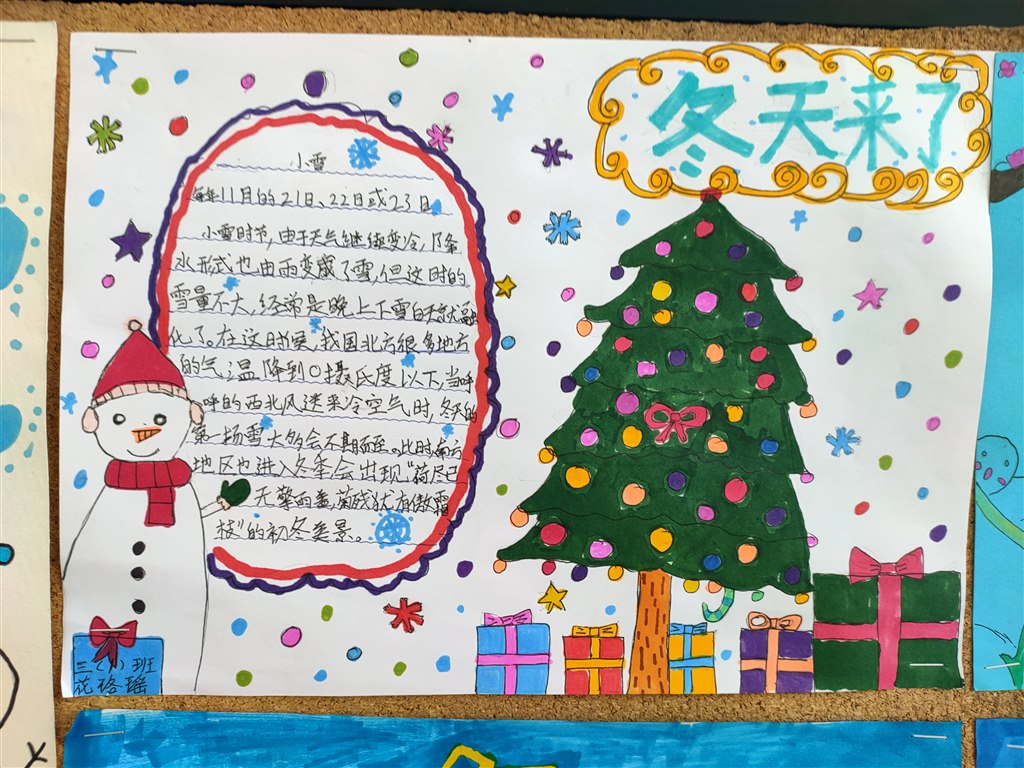 冬天来了
小雪
每年11月的21日、22日或23日
小雪时节,由于天气继续变冷,降
水形式也由雨变成了雪,但这时的
雪量不大,经常是晚上下雪白天就融
化了。在这时候,我国北方很多地方
的气温降到0摄氏度以下,当呼
呼的西北风送来冷空气时,冬天的
第一场雪大多会不期而至。此时,南方
地区也进入冬季会出现“荷尽已
无擎雨盖,菊残犹有傲霜
枝”的初冬美景。
三(小)班
花珞瑶